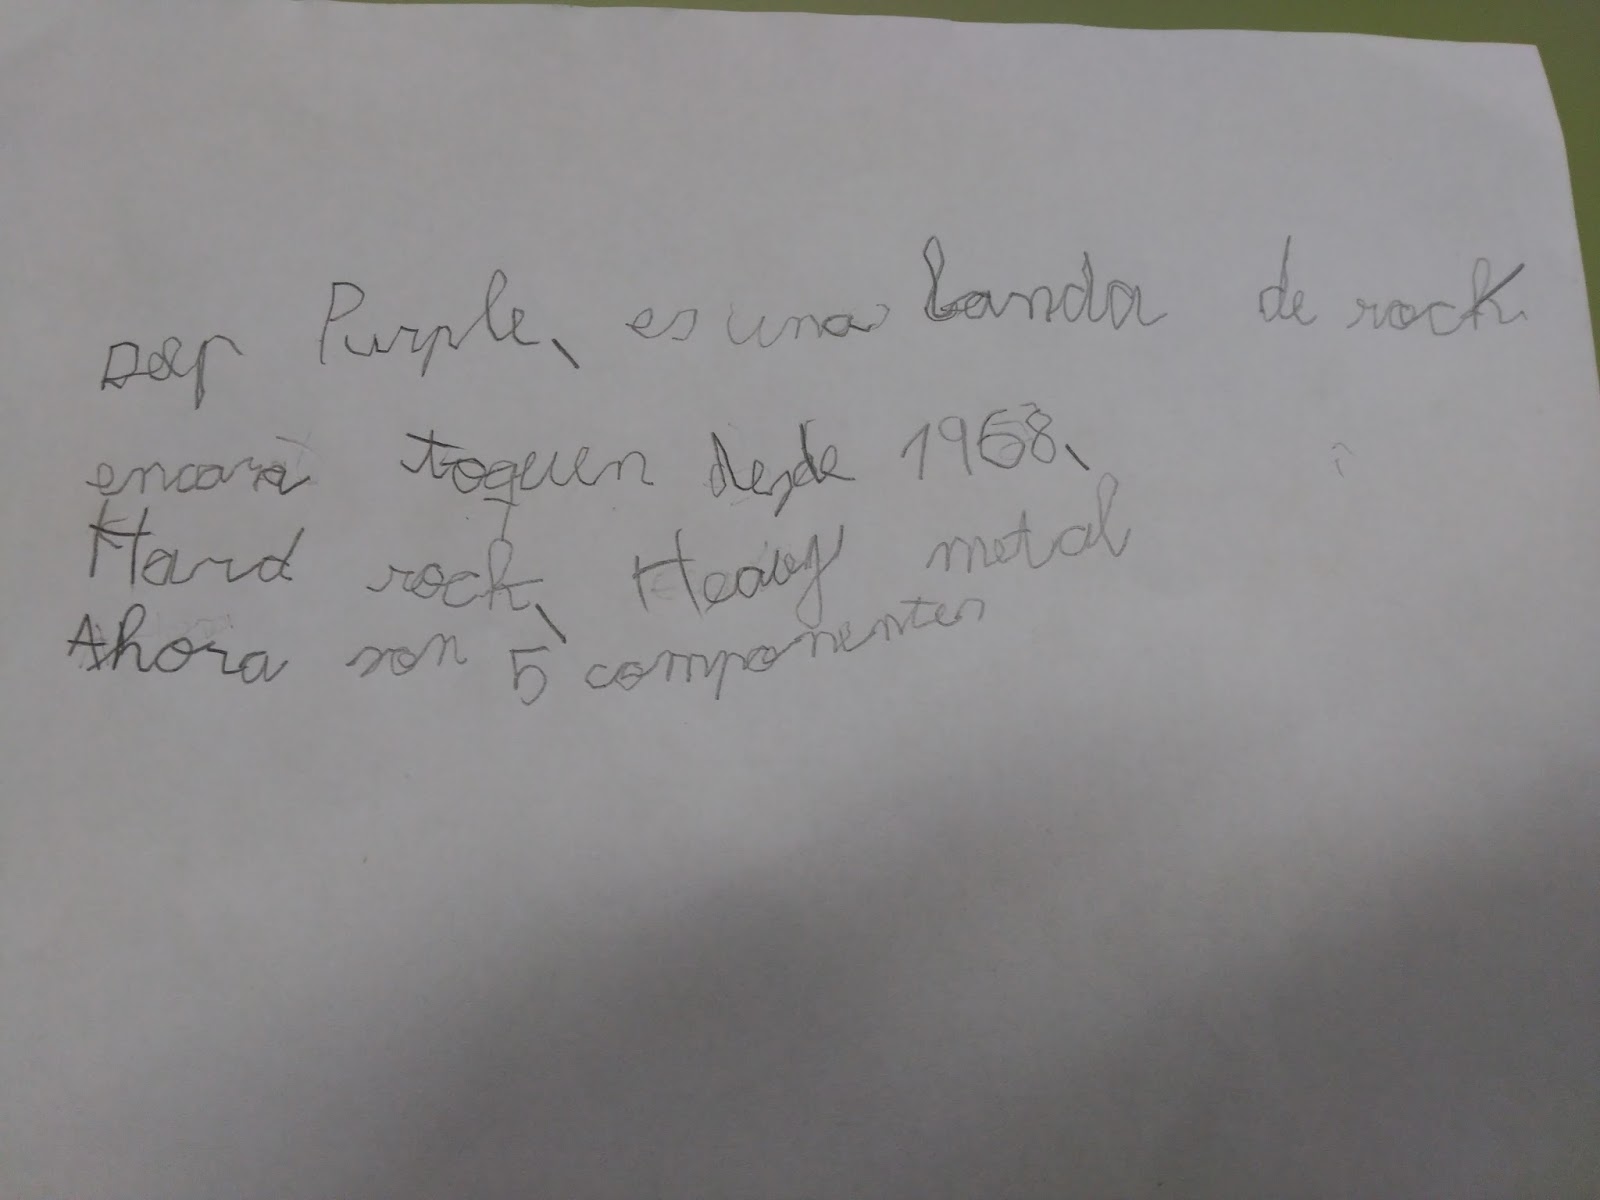 Deep Purple, es una banda de rock.
encara toquen desde 1968,
Hard rock, Heavy metal
Ahora son 5 componentes